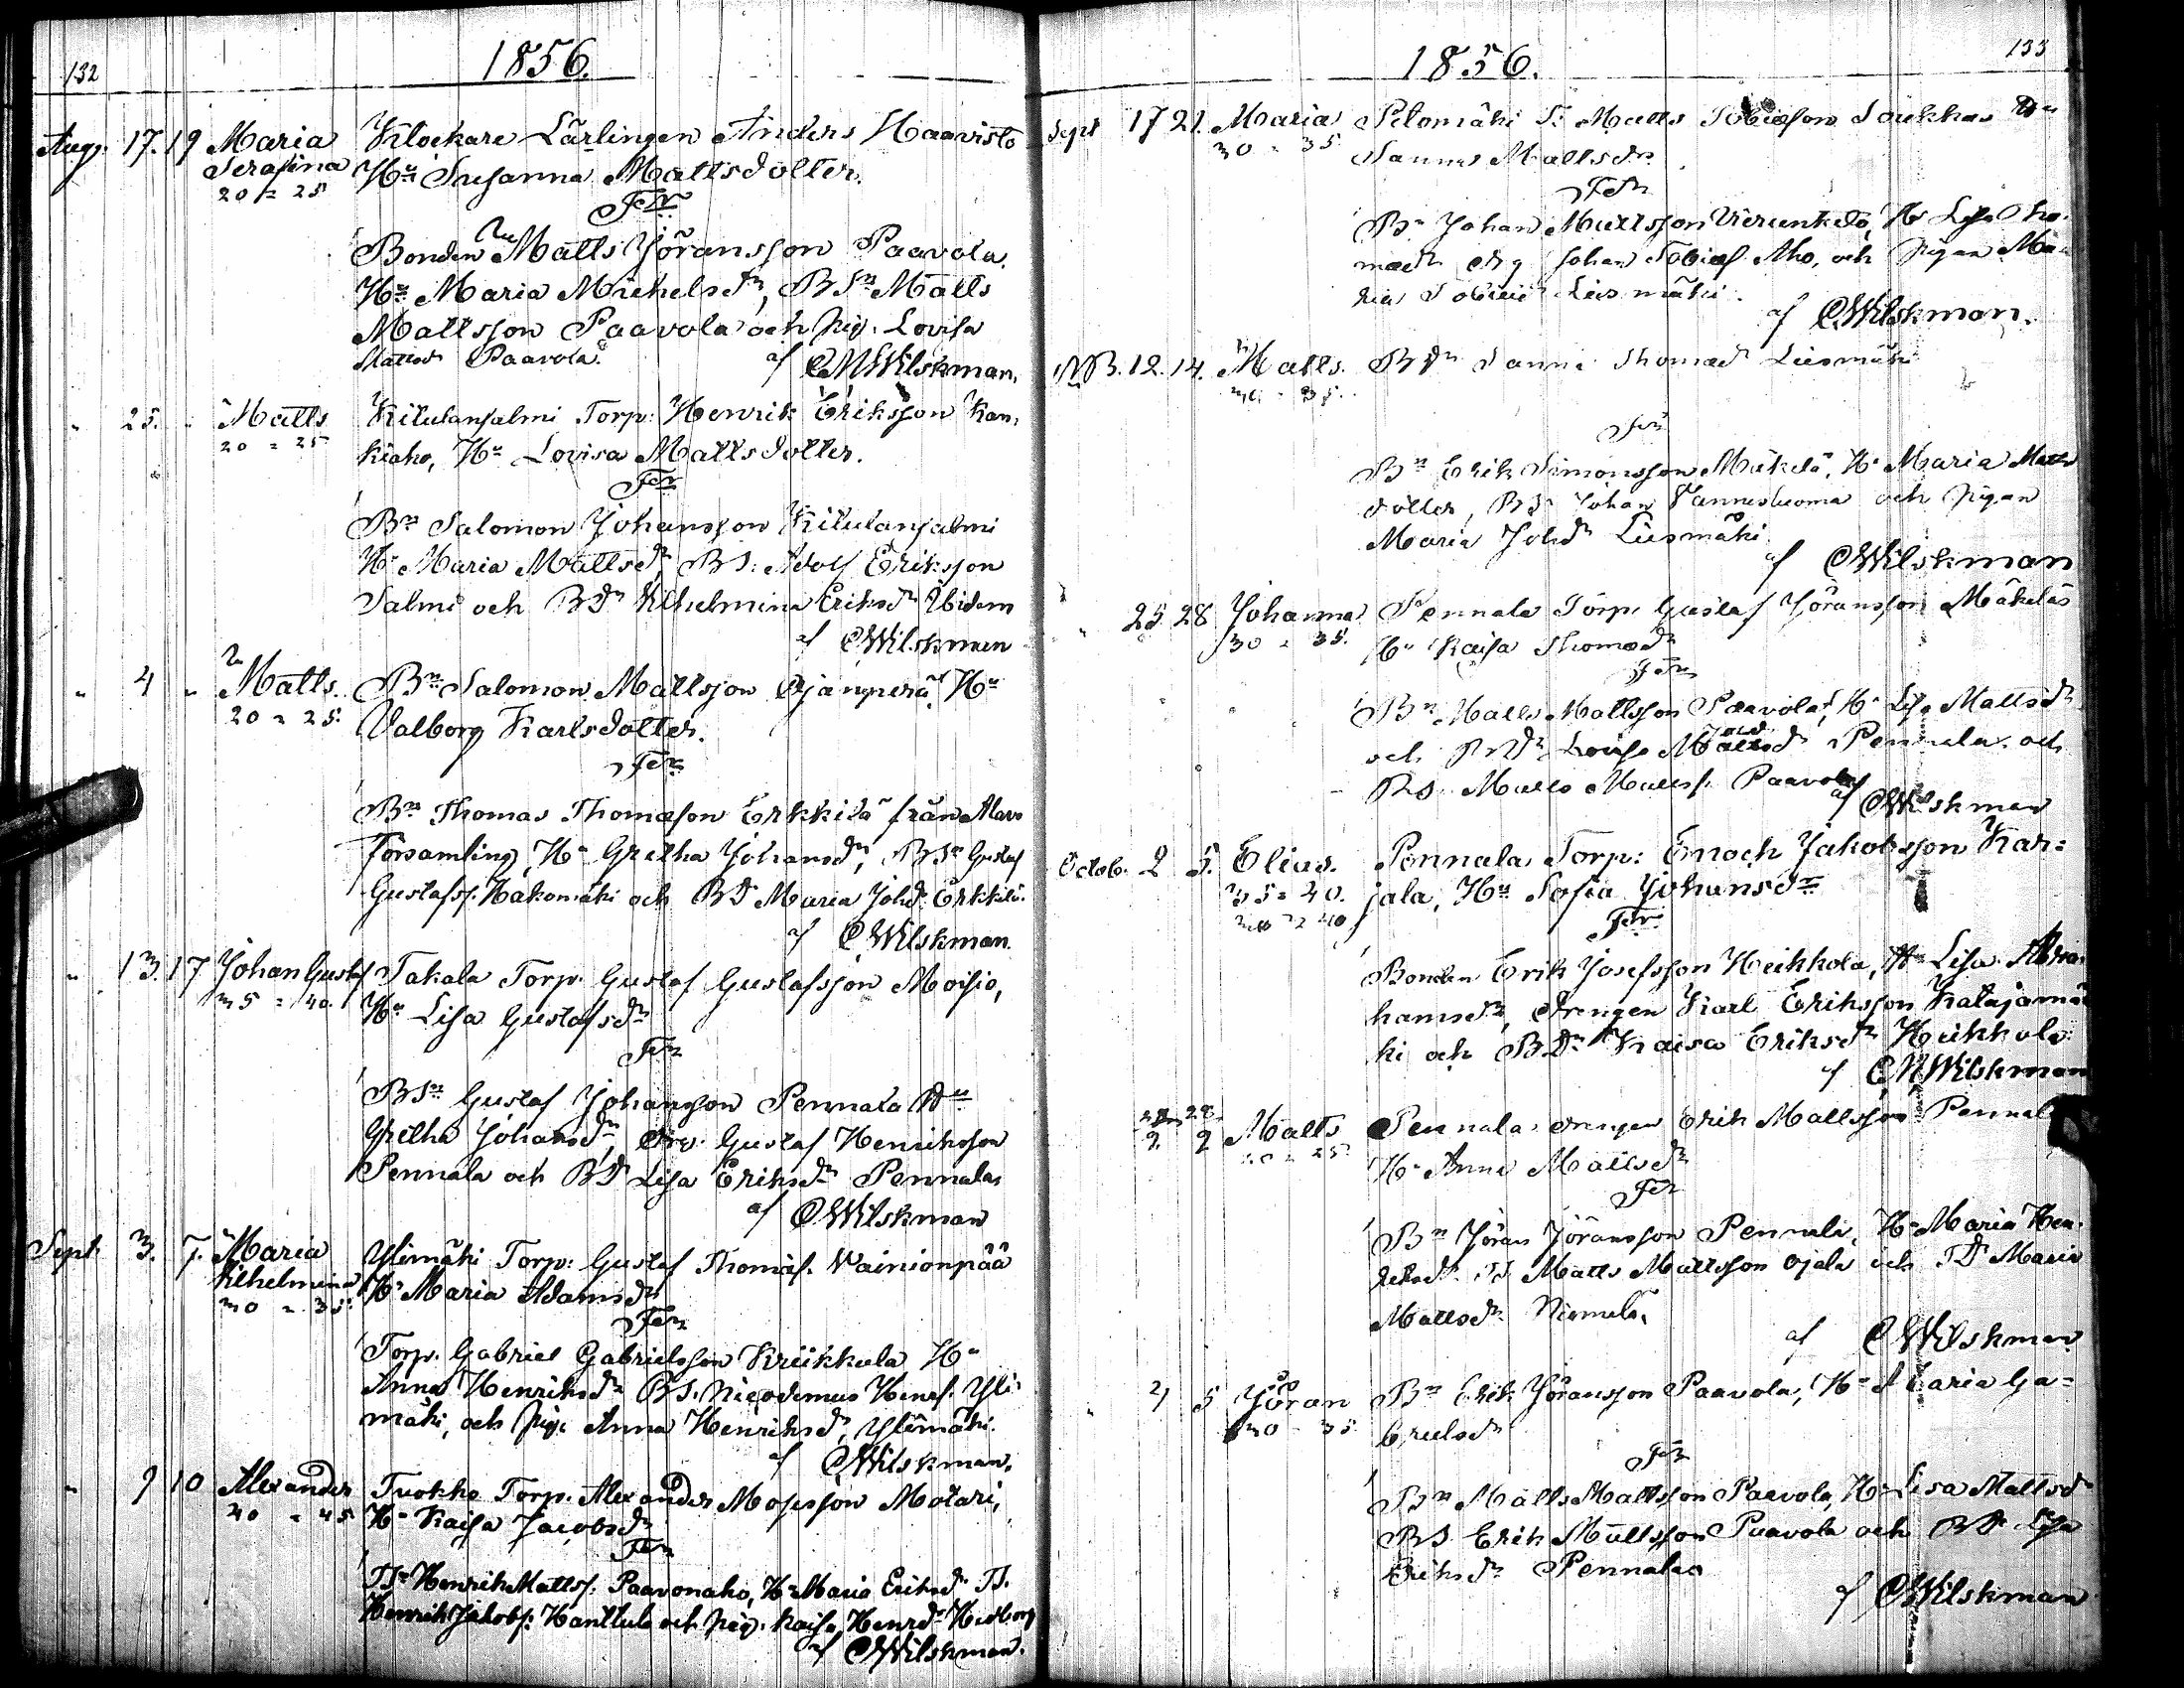 132
1856.
Aug. 17. 19 Maria Klockare Lärlingen Anders Haavisto
Serafina Hu Susanna Mattsdotter.
20 = 25
Fr
Bonden Matts Jöransson Paavola.
Hu Maria Michelsdr, BSn Matts
Mattsson Paavola och pig. Lovisa
Mattsdr Paavola.
af CWilskman.
" 25. " Matts Kitulansalmi Torp: Henrik Eriksson Kan-
20 = 25 kiaho, Hu Lovisa Mattsdotter.
Fr
Bn Salomon Johansson Kitulansalmi
Hu Maria Mattsdr, BS. Adolf Eriksson
Salmi och BDr Vilhelmina Eriksdr Ibidem
af CWilskman
" 4 " Matts. Bn Salomon Mattsson Ojanperä, Hu
20 = 25. Valborg Karlsdotter.
Fr
Bn Thomas Thomasson Erkkilä från Alavo
församling, Hu Gretha Johansdr, BSn Gustaf
Gustafss. Hakomäki och BD Maria Johdr Erkkilä.
af CWilskman.
" 13. 17 Johan Gustaf Takala Torp. Gustaf Gustafsson Moisio,
35 = 40. Hu Lisa Gustafsdr
Fr
BSn Gustaf Johansson Pennala Hu
Gretha Johansdr, Drg. Gustaf Henriksson
Pennala och BD Lisa Eriksdr Pennala
af CWilskman
Sept. 3. 7. Maria Ylimäki Torp: Gustaf Thomass. Wainionpää
Vilhelmina Hu Maria Adamsdr
30 = 35.
Fr
Torp. Gabriel Gabrielsson Kriikkula Hu
Anna Henriksdr BS. Nicodemus Henrs. Yli-
mäki, och pig. Anna Henriksdr, Ylimäki.
af CWilskman.
" 9 10 Alexander Tuokko Torp. Alexander Mosesson Motari,
40 = 45 Hu Kaisa Jacobsdr
Fr
TSn Henrik Mattss. Paavonaho, Hu Maria Eriksdr TS.
Henrik Jakobs. Hanttula och pig. Kaisa Henrdr Hedborg
af CWilskman.
133
1856.
Sept 17 21. Maria Pelomäki T. Matts Tobiasson Loukkas Hu
30 = 35. Sanna Mattsdr.
Fr
Bn Johan Mattsson Vierunketo, Hu Lisa Tho-
masdr drg Johan Tobias. Aho, och pigan Ma-
ria Tobiædr Liismäki.
af CWilskman.
NB. 12. 14. Matts. BDr Sanna Thomasdr Liismäki
30 = 35.
Fr
Bn Erik Simonsson Mäkelä, Hu Maria Matts
dotter, BSn Johan Vannesluoma och pigan
Maria Johdr Liismäki
af CWilskman
" 25 28 Johanna Pennala Torp. Gustaf Jöransson Mäkeläs
30 = 35. Hu Kaisa Thomasdr
Fr
Bn Matts Mattsson Paavola, Hu Lisa Mattsdr
och BDr Lovisa Mattsdr Pennala och
BS. Matts Mattss. Paavola
af CWilskman
Octob. 2 5. Elias. Pennala Torp: Enoch Jakobsson Kar=
35 = 40. jala, Hu Sofia Johansdr
Fr
Bonden Erik Josefsson Heikkola, Hu Lisa Abra-
hamsdr, drengen Karl Eriksson Katajamä
ki och BDr Kaisa Eriksdr Heikkola
af CWilskman
2 2 Matts Pennala drengen Erik Mattsson Pennala
20 = 25 Hu Anna Mattsdr
Fr
Bn Jöran Jöransson Pennala, Hu Maria Hen-
riksdr. TS Matts Mattsson Ojala och TD Maria
Mattsdr Niemelä.
af CWilskman
" 4 5 Jöran Bn Erik Jöransson Paavola, Hu Maria Ga=
30 = 35 brielsdr
Fr
Bn Matts Mattsson Paavola, Hu Lisa Mattsdr
BS Erik Mattsson Paavola och BD Lisa
Eriksdr Pennala
af CWilskman